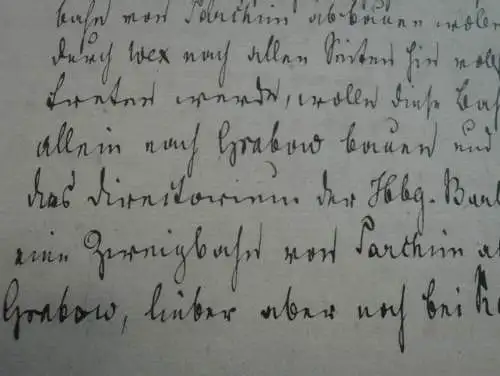 bahn von Parchim abbauen wolle
durch wex nach allen Seiten hin voll
treten werde, wolle diese Bah
allein nach Grabow bauen und
das Directorium der Hbg. Berl
eine Zweigbahn von Parchim a
Grabow, lieber aber noch bei